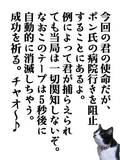 今回の君の使命だが、
ボン氏の病院行きを阻止
することにあるよ。
例によって君が捕らえられ
ても当局は一切関知しないぞ。
なおこのテープは5秒後に
自動的に消滅しちゃう。
成功を祈る。チャオ〜♪